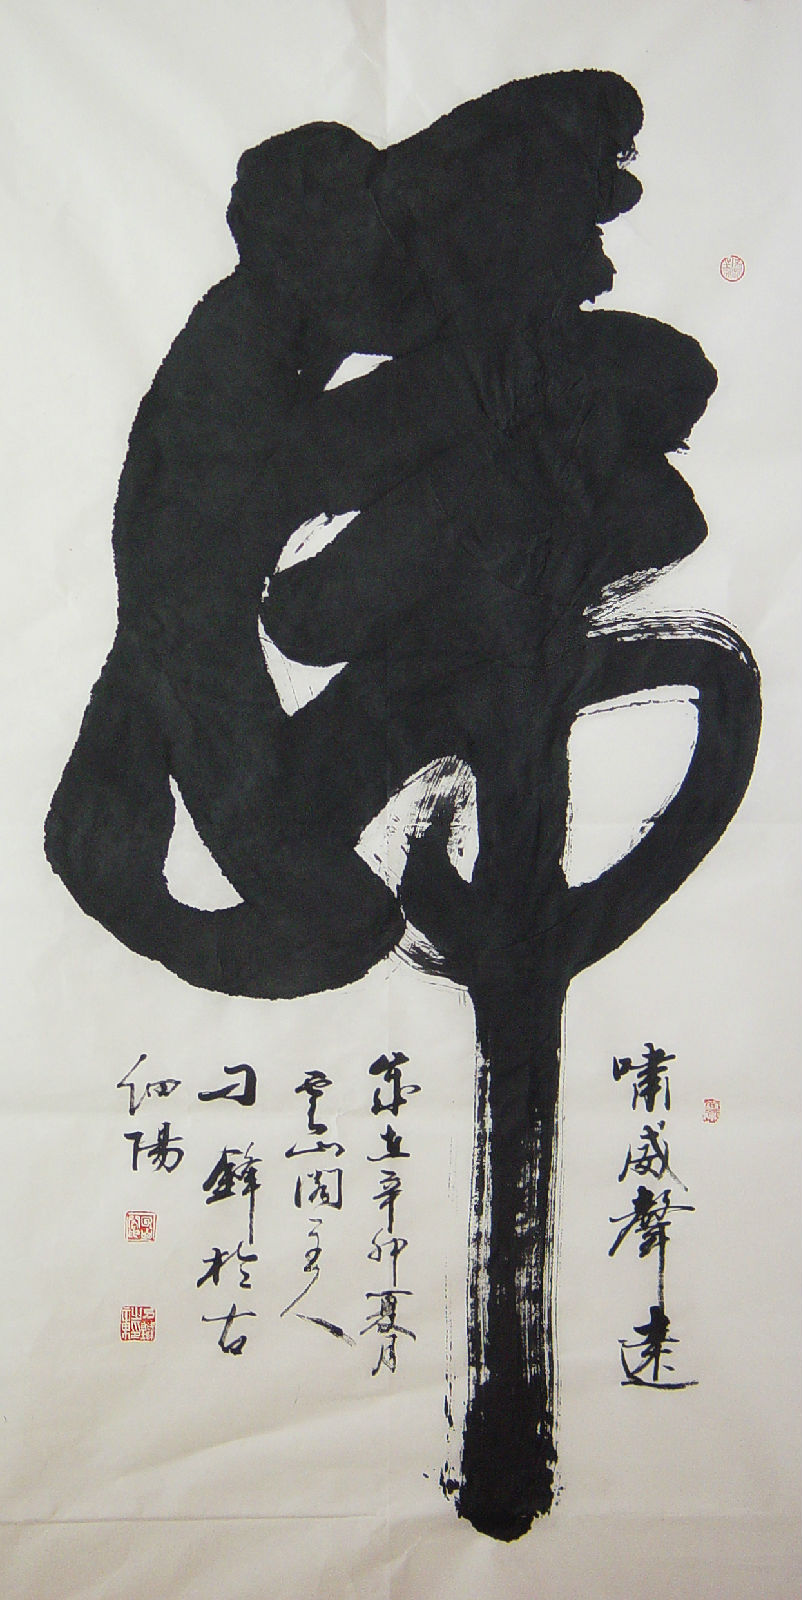 虎
啸威聲遠
歲在辛卯夏月
雲山閣主人
刁鋒於古
細陽